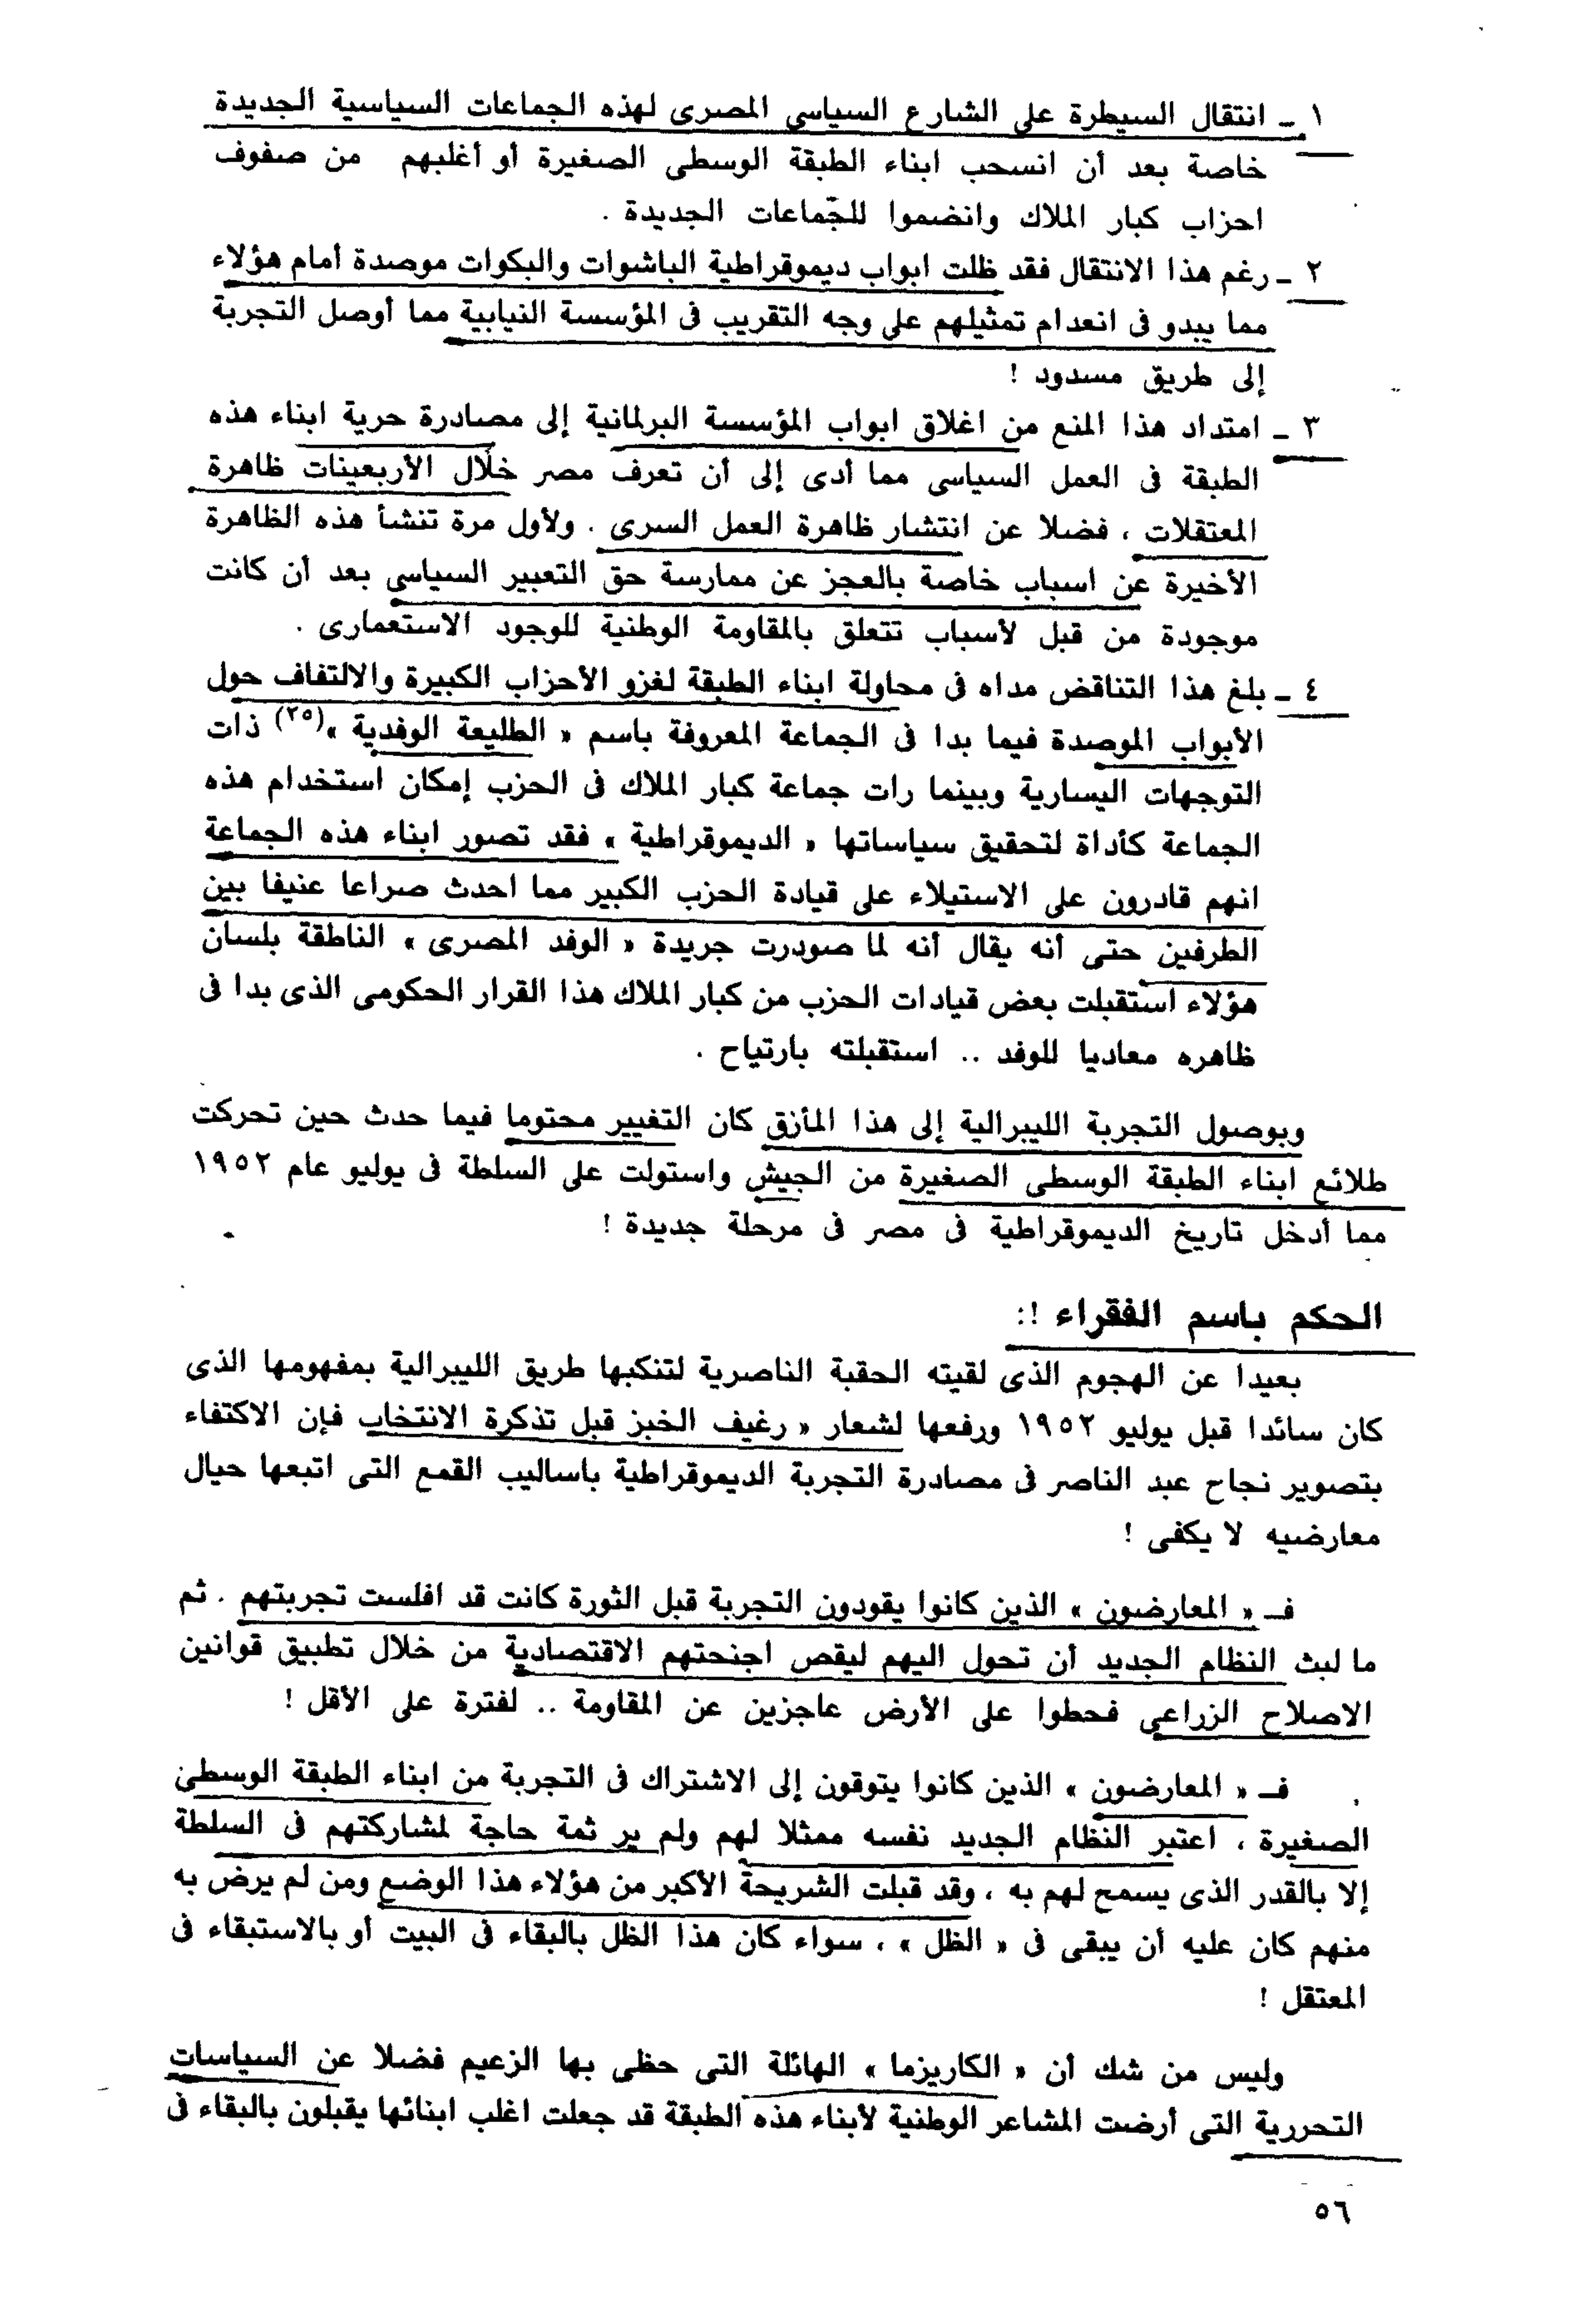 ١ ـ انتقال السيطرة على الشارع السياسي المصرى لهذه الجماعات السياسية الجديدة
خاصة بعد أن انسحب ابناء الطبقة الوسطى الصغيرة أو أغلبهم من صفوف
احزاب كبار الملاك وانضموا للجّماعات الجديدة .
٢ ـ رغم هذا الانتقال فقد ظلت ابواب ديموقراطية الباشوات والبكوات موصدة أمام هؤلاء
مما يبدو فى انعدام تمثيلهم على وجه التقريب فى المؤسسة النيابية مما أوصل التجربة
إلى طريق مسدود !
٣ ـ امتداد هذا المنع من اغلاق ابواب المؤسسة البرلمانية إلى مصادرة حرية ابناء هذه
الطبقة فى العمل السياسى مما أدى إلى أن تعرف مصر خلال الأربعينات ظاهرة
المعتقلات ، فضلا عن انتشار ظاهرة العمل السرى . ولأول مرة تنشأ هذه الظاهرة
الأخيرة عن اسباب خاصة بالعجز عن ممارسة حق التعبير السياسى بعد أن كانت
موجودة من قبل لأسباب تتعلق بالمقاومة الوطنية للوجود الاستعمارى .
٤ ـ بلغ هذا التناقض مداه فى محاولة ابناء الطبقة لغزو الأحزاب الكبيرة والالتفاف حول
الأبواب الموصدة فيما بدا فى الجماعة المعروفة باسم « الطليعة الوفدية »(٢٥) ذات
التوجهات اليسارية وبينما رات جماعة كبار الملاك فى الحزب إمكان استخدام هذه
الجماعة كأداة لتحقيق سياساتها « الديموقراطية » فقد تصور ابناء هذه الجماعة
انهم قادرون على الاستيلاء على قيادة الحزب الكبير مما احدث صراعا عنيفا بين
الطرفين حتى أنه يقال أنه لما صودرت جريدة « الوفد المصرى » الناطقة بلسان
هؤلاء استقبلت بعض قيادات الحزب من كبار الملاك هذا القرار الحكومى الذى بدا فى
ظاهره معاديا للوفد .. استقبلته بارتياح .
وبوصول التجربة الليبرالية إلى هذا المأزق كان التغيير محتوما فيما حدث حين تحركت
طلائع ابناء الطبقة الوسطى الصغيرة من الجيش واستولت على السلطة فى يوليو عام ١٩٥٢
مما أدخل تاريخ الديموقراطية فى مصر فى مرحلة جديدة !
الحكم باسم الفقراء !:
بعيدا عن الهجوم الذى لقيته الحقبة الناصرية لتنكبها طريق الليبرالية بمفهومها الذى
كان سائدا قبل يوليو ١٩٥٢ ورفعها لشعار « رغيف الخبز قبل تذكرة الانتخاب فإن الاكتفاء
بتصوير نجاح عبد الناصر فى مصادرة التجربة الديموقراطية باساليب القمع التى اتبعها حيال
معارضيه لا يكفى !
فـ « المعارضون » الذين كانوا يقودون التجربة قبل الثورة كانت قد افلست تجربتهم . ثم
ما لبث النظام الجديد أن تحول اليهم ليقص اجنحتهم الاقتصادية من خلال تطبيق قوانين
الاصلاح الزراعى فحطوا على الأرض عاجزين عن المقاومة .. لفترة على الأقل !
فـ « المعارضون » الذين كانوا يتوقون إلى الاشتراك فى التجربة من ابناء الطبقة الوسطى
الصغيرة ، اعتبر النظام الجديد نفسه ممثلا لهم ولم ير ثمة حاجة لمشاركتهم فى السلطة
إلا بالقدر الذى يسمح لهم به ، وقد قبلت الشريحة الأكبر من هؤلاء هذا الوضع ومن لم يرض به
منهم كان عليه أن يبقى فى « الظل » ، سواء كان هذا الظل بالبقاء فى البيت أو بالاستبقاء فى
المعتقل !
وليس من شك أن « الكاريزما » الهائلة التى حظى بها الزعيم فضلا عن السياسات
التحررية التى أرضت المشاعر الوطنية لأبناء هذه الطبقة قد جعلت اغلب ابنائها يقبلون بالبقاء فى
٥٦